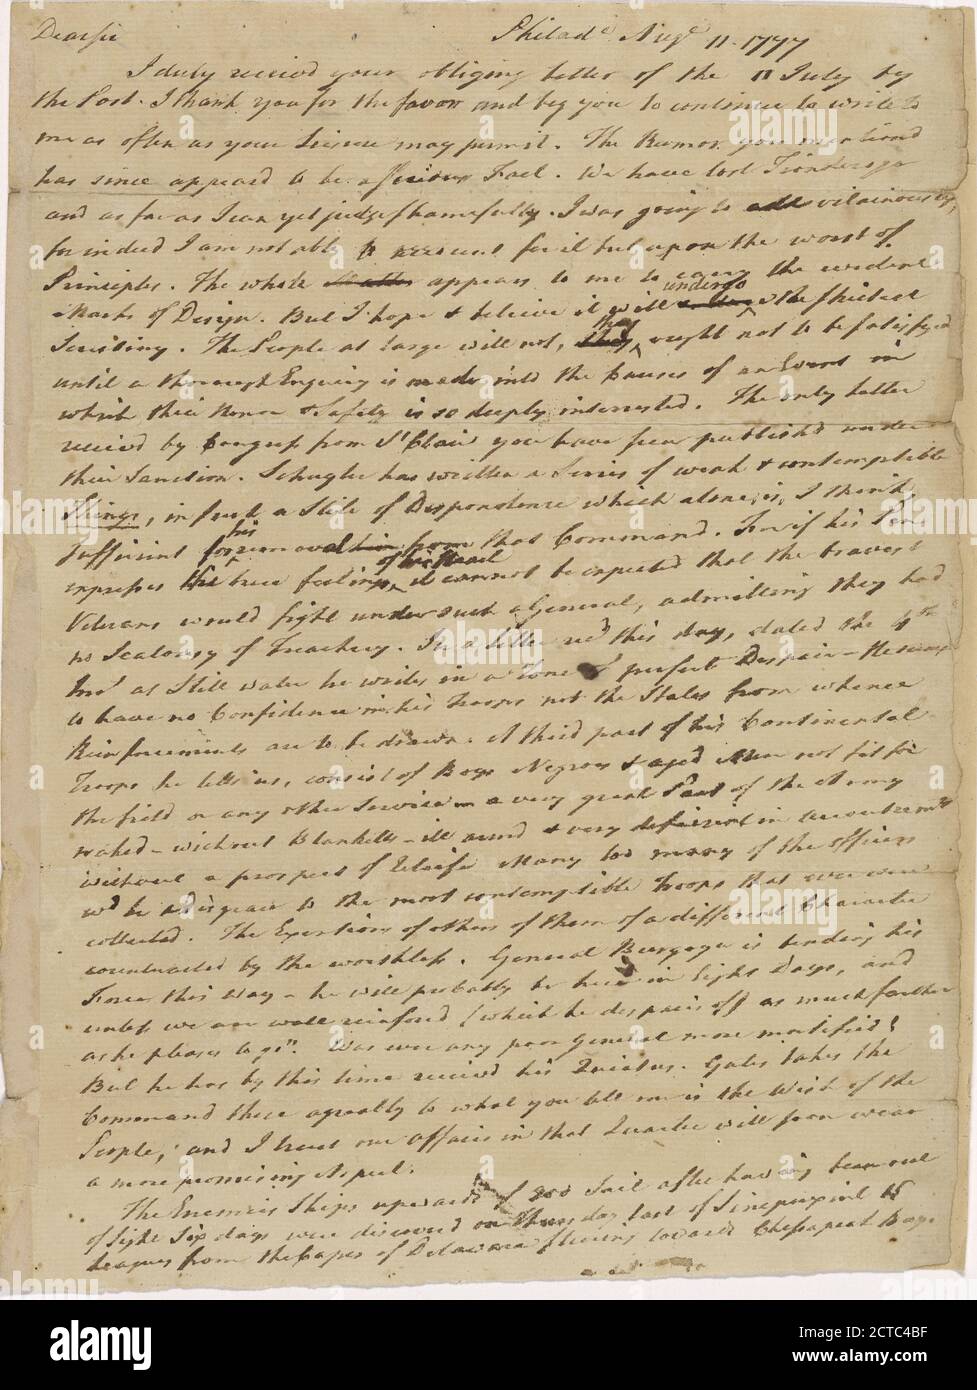 Dear sir Philad.ᵃ Aug.ᵗ 11. 1777
I duly receivd your obliging letter of the 11 July by
the Post. I thank you for the favor and beg you to continue to write to
me as often as your Leisure may permit. The Rumor you mentiond
has since appeard to be a serious Fact. We have lost Ticonderoga
and as far as I can yet judge shamefully. I was going to add vilainously,
for indeed I am not able to account for it but upon the worst of
Principles. The whole matter appears to me to carry the evident
Marks of Design. But I hope & believe it will undergo the strictest
Scrutiny. The People at large will not, they ought not to be satisfyed
until a thorough Enquiry is made into the Causes of an Event in
which their Honor & Safety is so deeply interested. The only letter
receivd by Congress from St Clair you have seen publishd under
their Sanction. Schuyler has written a Series of weak & contemptible
Things, in such a Stile of Despondence which alone, is, I think,
sufficient for his removal from that Command. For if his Pen
expresses the true feelings of his Heart, it cannot be expected that the bravest
Veterans would fight under such a General, admitting they had
no Jealousy of Treachery. In a letter recd this day, dated the 4th
Inst at Still water he writes in a Tone of perfect Despair – He seems
to have no Confidence in his Troops nor the States from whence
Reinforcements are to be drawn. A third part of his Continental
Troops he tells us, consist of Boys Negroes & aged Men not fit for
the field or any other Service – a very great Part of the Army
naked – without Blanketts – ill armd & very deficient in accoutrements
without a prospect of Releife Many too many of the officers
wd be a disgrace to the most contemptible Troops that ever were
collected. The Exertions of others of them of a different Character
counteracted by the worthless. General Burgoyne is bending his
Force this way – he will probably be here in Eight Days, and
unless we are well reinforcd (which he despairs of) as much farther
as he pleases to go". Was ever any poor General more mortified!
But he has by this time receivd his Quietus. Gates takes the
Command there agreeably to what you tell me is the Wish of the
People; and I trust our affairs in that Quarter will soon wear
a more promising Aspect.
The Enemies Ships upwards of 200 Sail after having been out
of sight Six days were discoverd on Thursday last of Sinepuxint 15
leagues from the Capes of Delaware steering towards Chesapeak Bay.
alamy
Image ID: 2CTC4BF
www.alamy.com